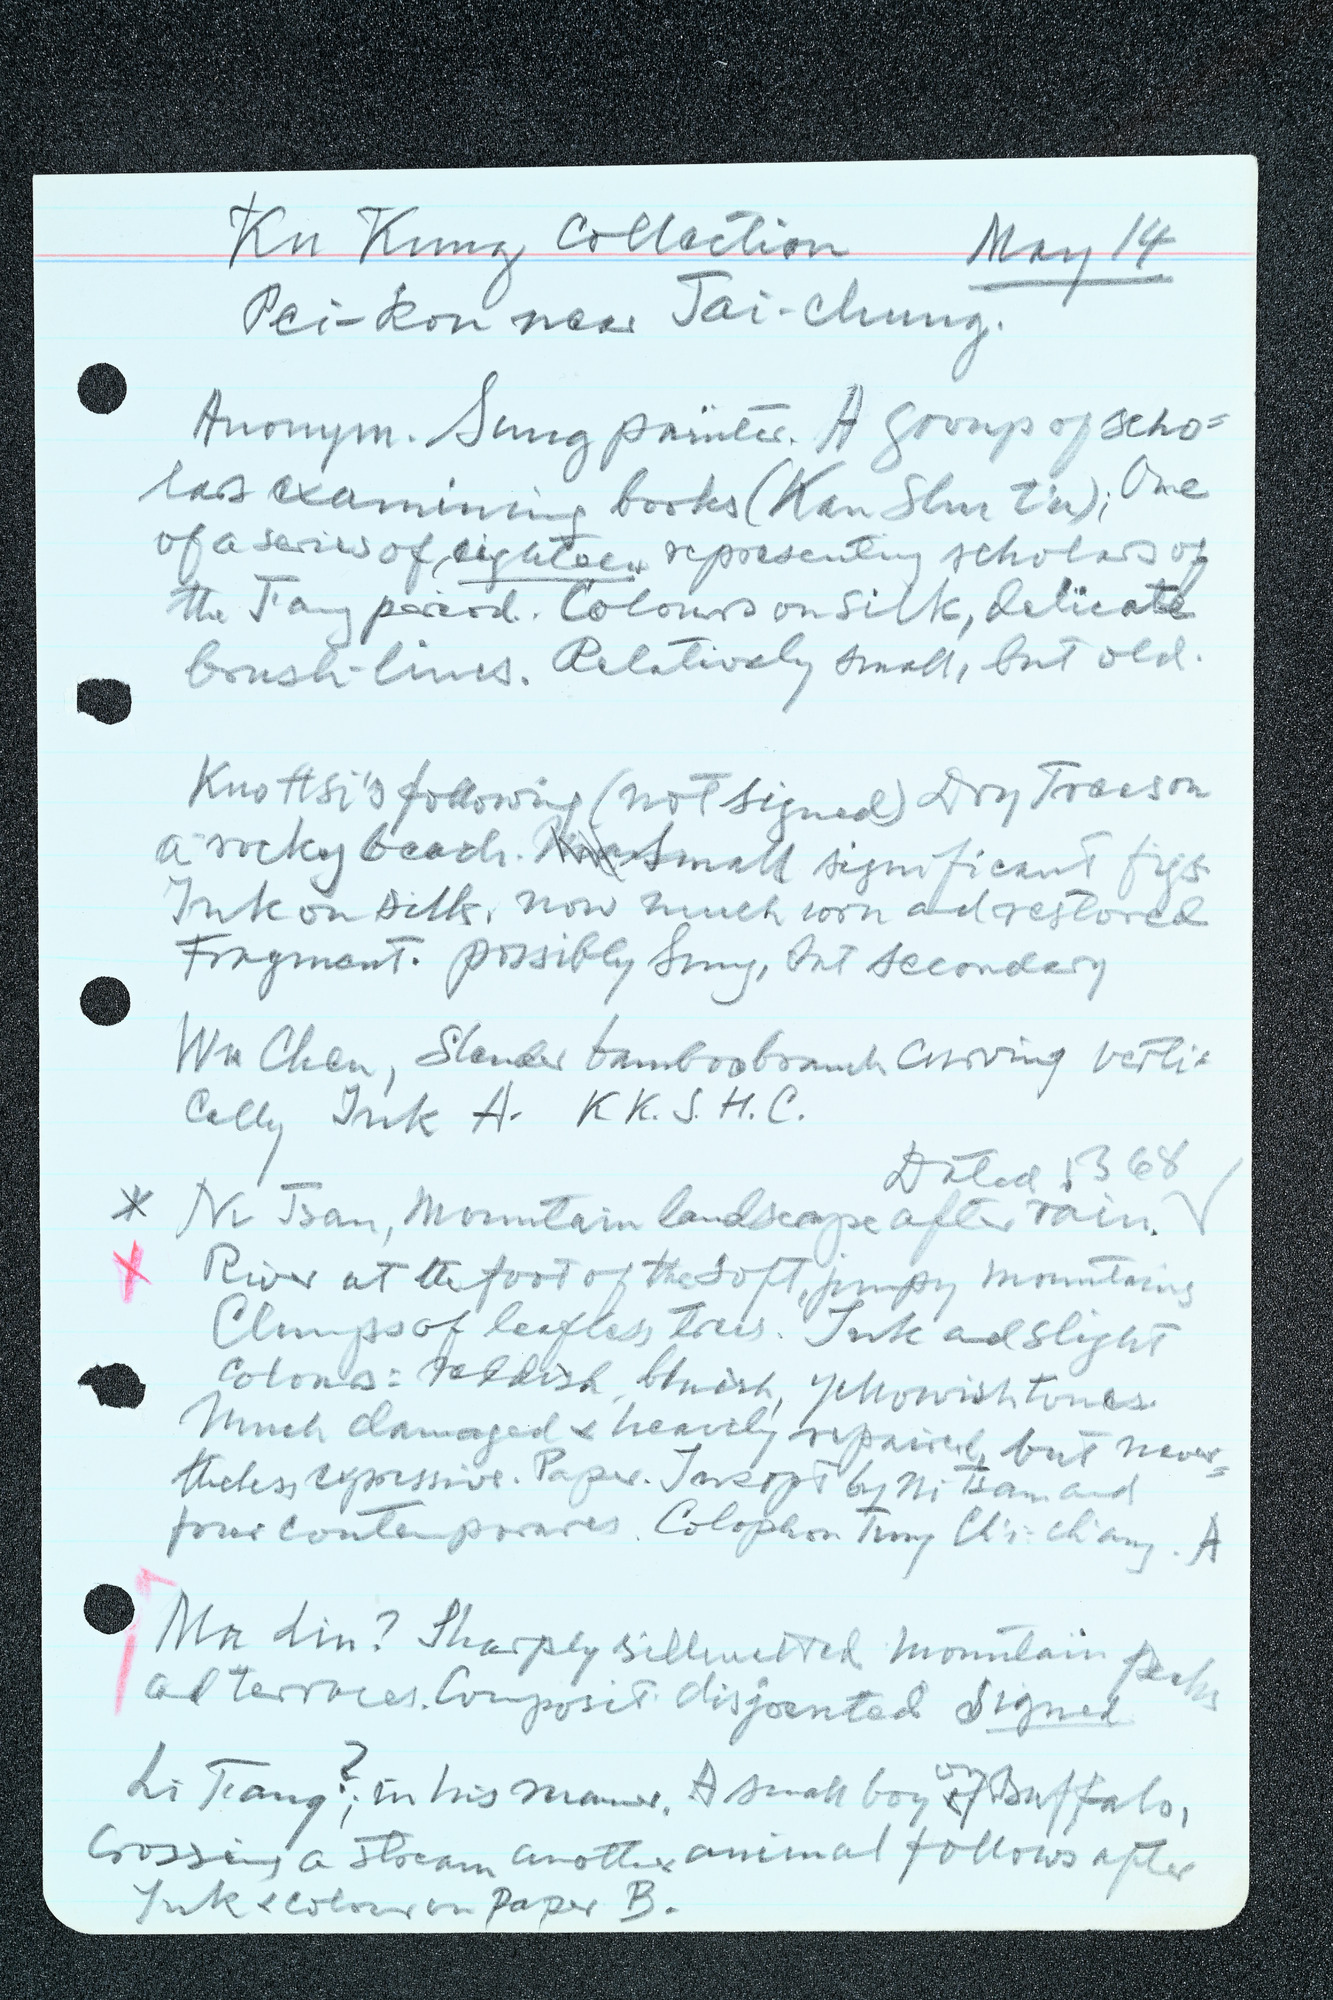 Ku Kung Collection May 14
Pei-kou near Tai-chung.
Anonym. Sung painter. A group of scho=
lars examining books (Kan Shu t'u); One
of a series of eighteen representing scholars of
the T'ang period. Colours on silk, delicate
brush-lines. Relatively small, but old.
Kuo Hsi's following (not signed) Dry Trees on
a rocky beach. Small significant figs.
Ink on silk, now much worn and restored
Fragment. possibly Sung, but secondary
Wu Chen, Slender bamboobranch curving verti=
cally Ink A. K.K.S.H.C.
Dated 1368
* Ni Tsan, Mountain landscape after rain. √
x River at the foot of the soft, jumpy mountains
Clumps of leafless trees. Ink and slight
colours: reddish, bluish, yellowish tones.
Much damaged & heavily repaired, but never=
theless expressive. Paper. Inscript by Ni Tsan and
four contemporaries. Colophon Tung Ch'i-ch'ang. A
Ma Lin? Sharply silhuetted mountain peaks
and terraces. Composit. disjointed Signed
Li T'ang?; in his manner. A small boy on Buffalo,
crossing a stream another animal follows after
Ink & colour on Paper B.